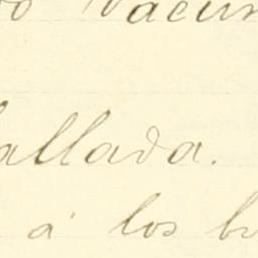 vacun
allada.
á los b